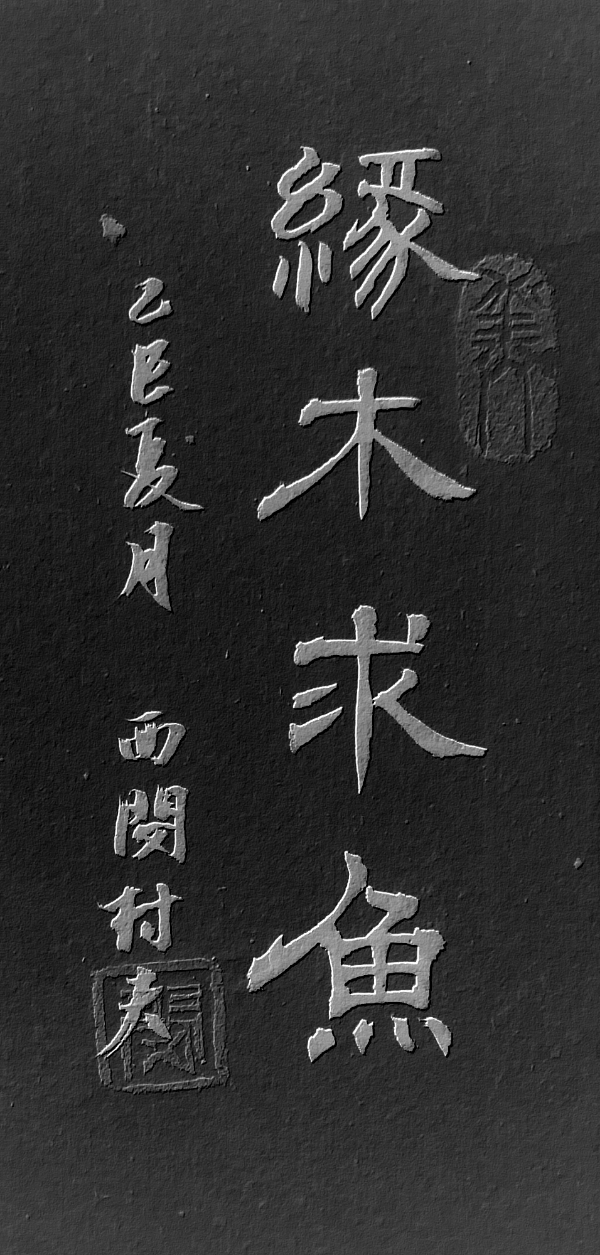 緣木求魚
乙巳夏月 西閔村夫